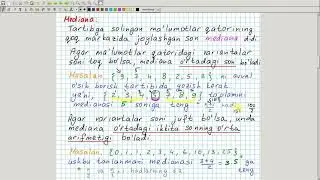 Mediana.
Tartibga solingan ma'lumotlar qatorining
qoq markazida joylashgan son mediana d.di.
Agar ma'lumotlar qatoridagi variantalar
soni toq bo'lsa, mediana o'rtadagi son bo'ladi
Masalan, { 9, 3, 4, 8, 2, 5, 8 } ni avval
o'sib borish tartibida yozish kerak
ya'ni, { 2, 3, 4, 5, 8, 8, 9 } to'plamni
medianasi 5 soniga teng
Agar variantalar soni juft bo'lsa, unda
mediana o'rtadagi ikkita sonning o'rta
arifmetigi bo'ladi.
Masalan, { 0, 1, 1, 2, 3, 4, 6, 10, 13, 25 }
ushbu tanlanmani medianasi = 3.5 ga
teng